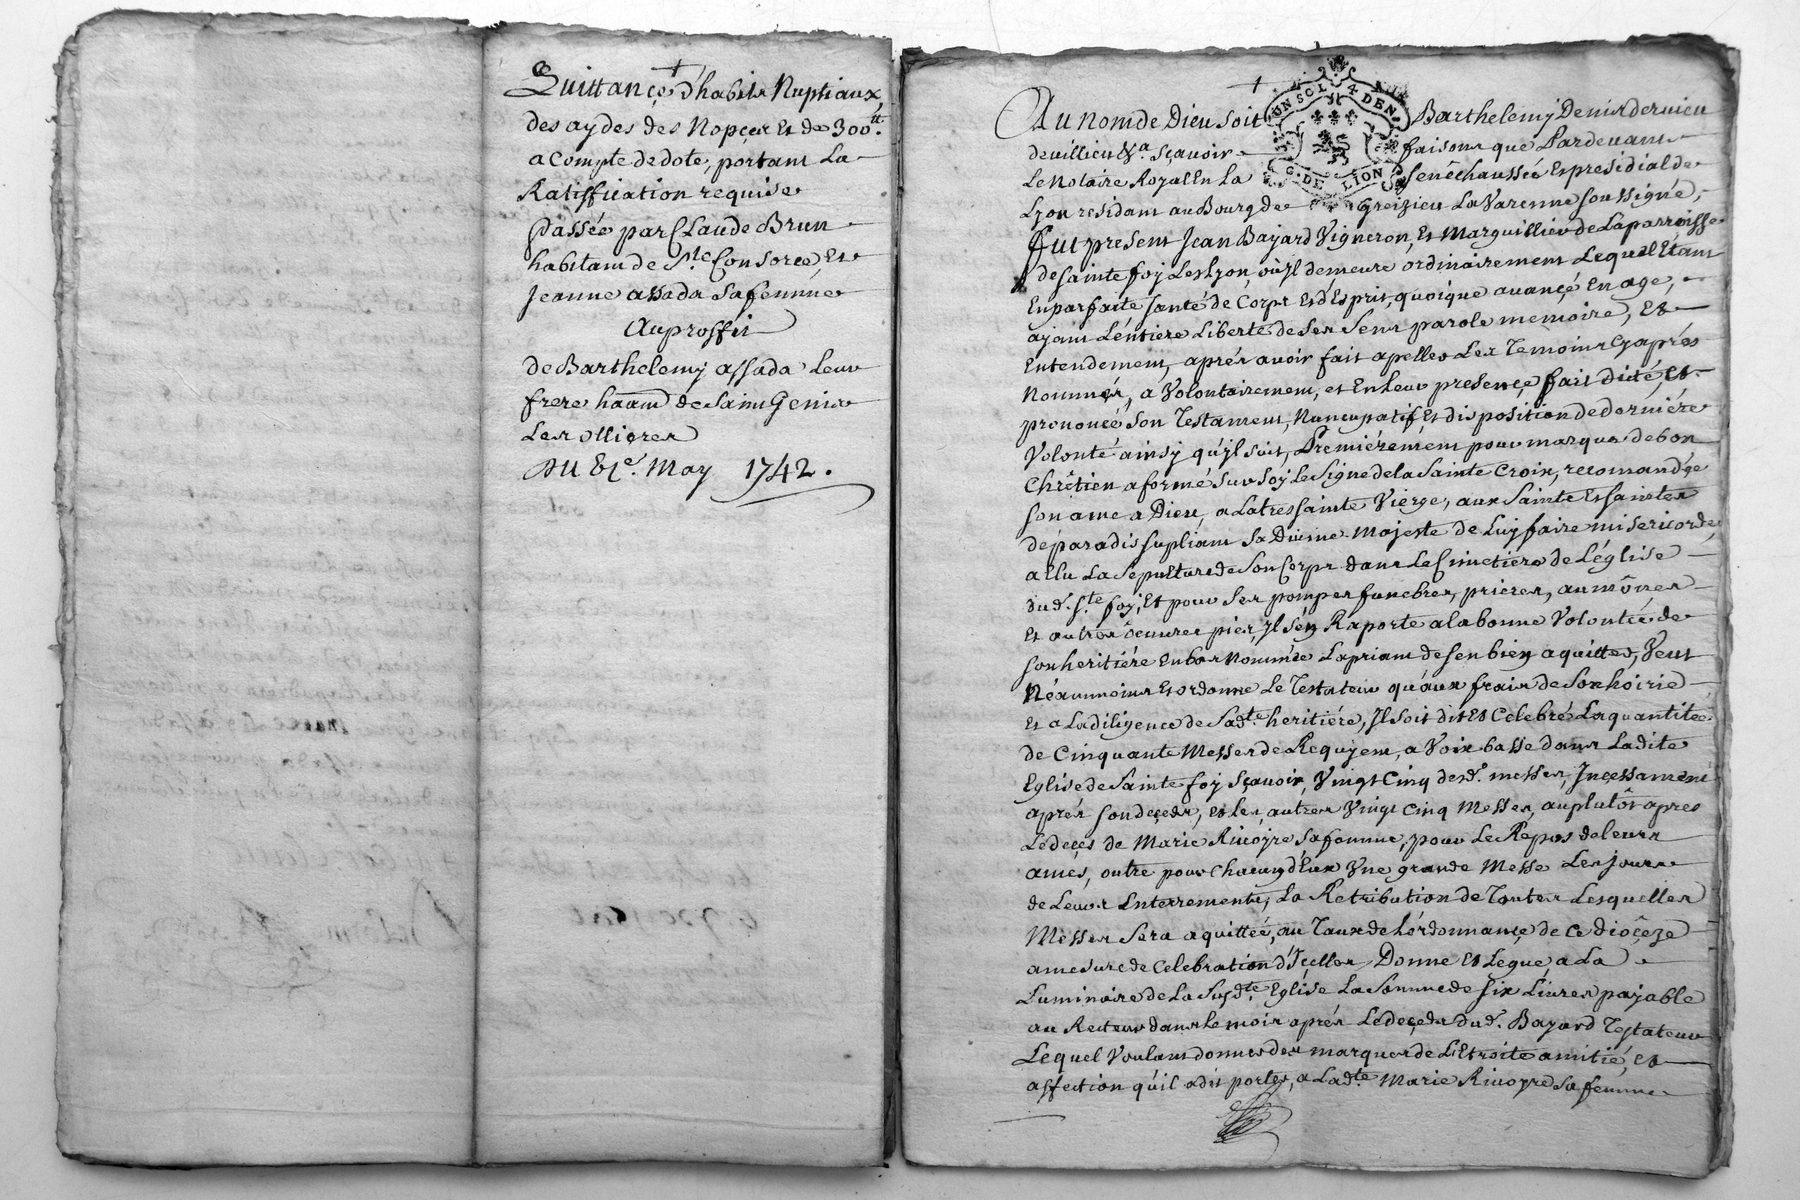 Quittance d'habits Nuptiaux,
des aydes des Nopçes Et de 300tt.
a Compte de dote, portant La
Ratiffication requise
Passée par Claude Brun
habitant de Ste. Consorce, Et
Jeanne assada Sa femme
Au proffit
de Barthelemy assada Leur
frere haant de Saint Genis
Les Ollieres
Du 61e. May 1742.
Au nom de Dieu Soit Barthelemy Denis dervieu
devillieu &a. Sçavoir faisons que Pardevant
Le Notaire Royal En La Senêchaussée Et presidial de
Lyon residant au Bourg de Greizieu La Varenne Soussigné,
UN SOL 4 DEN
G. DE LION
fut present Jean Bayard Vigneron, Et Marguillier de La parroisse
de Sainte foy Les Lyon, où Il demeure ordinairement Lequel Etant
En parfaite Santé de Corps Et d'Esprit, quoique avançé En age,
ayant L'entiere Liberté de Ses Sens parole memoire, Et
Entendement, aprés avoir fait apeller Les Temoins Cy aprés
Nommés, a Volontairement, et En Leur presençe fait dicté, Et
prenoncé Son Testament Nuncupatif Et disposition de derniére
Volonté ainsy qu'Il suit, Premiérement pour marque de bon
Chrêtien a formé Sur Soy Le Signe de la Sainte Croix, recomandée
Son ame a Dieu, a La tres Sainte Vierge, aux Saints Et Saintes
de paradis Supliant Sa Divine Majesté de Luy faire misericorde,
a Elu La Sepulture de Son Corps dans Le Cimetiere de L'église
dud. Ste foy, Et pour Ses pompes funebres, prieres, aumônes
Et autres oeuvres pies, Il S'en Raporte a la bonne Volontée de
Son heritiére En bas Nommée La priant de S'en bien aquitter, Veut
Néanmoins Et ordonne Le Testateur qu'aux frais de Son hoirie
Et a La diligence de Sadte. heritiére, Il Soit dit Et Celebré La quantitée
de Cinquante Messes de Requiem, a Voix basse dans Ladite
Eglise de Sainte foy Sçavoir, Vingt Cinq desd. messes, Inçessament
aprés Son deçeds, et les autres Vingt Cinq Messes, au plutôt apres
Le deçés de Marie Rivoyre Sa femme, pour Le Repos de leurs
ames, outre pour chacun d'Eux Une grande Messe Les jours
de Leurs Enterrements, La Retribution de Toutes Lesquelles
Messes Sera aquittée, au Taux de L'ordonnançe de Ce dioçeze
a mesure de Celebration d'Icelles, Donne Et Legue a La
Luminaire de La Susdte. Eglise La Somme de Six Livres payable
au Recteur dans Le mois aprés Le deçeds dud. Bayard Testateur
Lequel Voulant donner des marques de L'Etroite amitié, Et
affection qu'il a dit porter, a Ladte Marie Rivoyre Sa femme